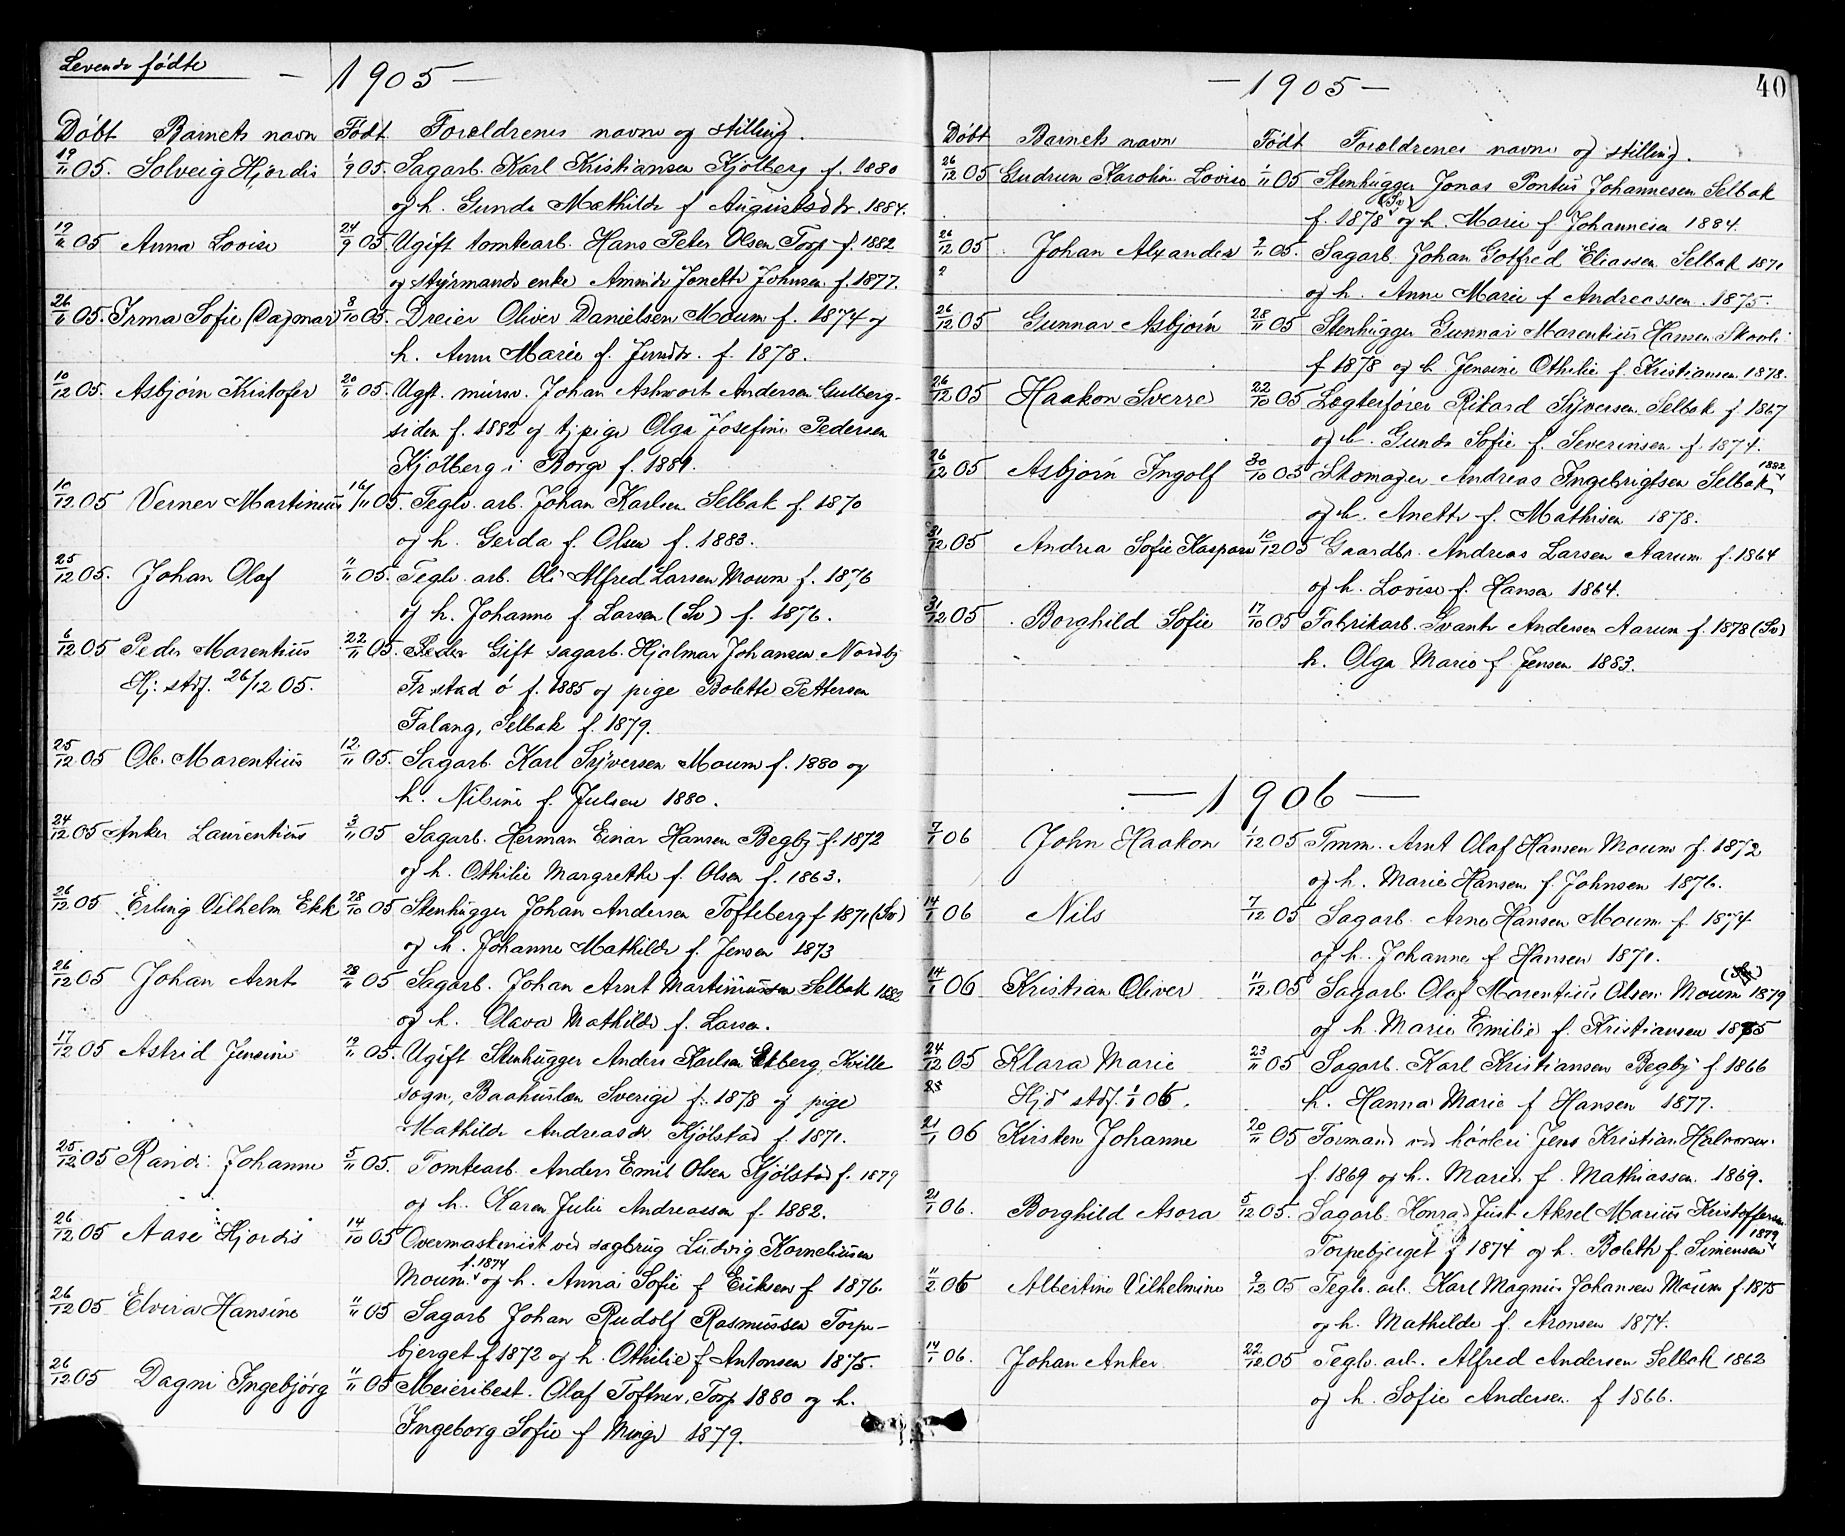 Levende fødte
— 1905 —
Døbt Barnets navn Født Forældrenes navne og stilling.
19/11 05. Solveig Hjørdis 1/9 05. Sagarb. Karl Kristiansen Kjølberg f. 1880
og h. Gunda Mathilde f Augustsdtr. 1884.
19/11 05 Anna Lovise 24/9 05. Ugift tomtearb. Hans Peter Olsen Torp f. 1882
og styrmands enke Aminda Jonette Johnsen f. 1877.
26/11 05. Irma Sofie (Dagmar) 8/10 05. Dreier Oliver Danielsen Moum f. 1874 og
h. Anne Marie f. f. 1878.
10/12 05. Asbjørn Kristofer 20/11 05. Ugft. murer. Johan Ashwort Andersen Gulberg-
siden f. 1882 og tj.pige Olga Josefine Pedersen
Kjølberg i Borge f. 1881.
10/12 05 Verner Martinius 16/11 05. Teglv. arb. Johan Karlsen Selbak f. 1870
og h. Gerda f. Olsen f. 1883.
25/12 05. Johan Olaf 11/11 05. Teglv. arb. Ole Alfred Larsen Moum f. 1876
og h. Johanne f Larsen (Sv) f. 1876.
6/12 05 Peder Marentius 22/11 05. Gift sagarb. Hjalmar Johansen Nordby
Hj: stdf. 26/12 05. Frstad ø f. 1885 og pige Bolette Pettersen
Falang, Selbak f. 1879.
25/12 05 Ole Marentius 12/11 05. Sagarb. Karl Syversen Moum f. 1880 og
h. Nilsine f. Julsen 1880.
24/12 05 Anker Laurentius 3/11 05 Sagarb. Herman Einar Hansen Begby f. 1872
og h. Othilie Margrethe f. Olsen f. 1863.
26/12 05 Erling Vilhelm Ekk 28/10 05 Stenhugger Johan Andersen Tofteberg f 1871 (Sv)
og h. Johanne Mathilde f. Jensen 1873
26/12 05 Johan Arnt 23/11 05 Sagarb. Johan Arnt Martiniussen Selbak 1882
og h. Olava Mathilde f. Larsen.
17/12 05 Astrid Jensine 19/11 05. Ugift Stenhugger Anders Karlsen Ekberg, Kville
sogn, Baahuslen Sverige f. 1878 og pige
Mathilde Andreasdtr Kjølstad f. 1871.
25/12 05 Randi Johanne 5/11 05. Tomtearb. Anders Emil Olsen Kjølstad f. 1879
og h. Karen Julie Andreassen f. 1882.
26/12 05 Aase Hjørdis 14/10 05 Overmaskinist ved sagbrug Ludvig Korneliusen
Moum f. 1874 og h. Anna Sofie f Eriksen f 1876.
26/12 05 Elvira Hansine 11/11 05 Sagarb Johan Rudolf Rasmussen Torpe-
bjerget f 1872 og h. Othilie f Antonsen 1875.
26/12 05 Dagni Ingebjørg 11/11 05 Meieribest. Olaf Toftner, Torp 1880 og h.
Ingeborg Sofie f Minge 1879.
— 1905 — 40
Døbt Barnets navn Født Forældrenes navne og stilling.
26/12 05 Gudrun Karoline Lovise 1/11 05 Stenhugger Jonas Pontus Johannesen Selbak
f. 1878 (Sv) og h. Marie f Johannesen 1884.
26/12 05 Johan Alexander 2/11 05. Sagarb. Johan Gotfred Eliassen Selbak 1871
og h. Anne Marie f Andreassen. 1875.
26/12 05 Gunnar Asbjørn 28/11 05 Stenhugger Gunnar Marentius Hansen Skovli
f 1878 og h Jensine Othilie f. Kristiansen 1878.
26/12 05 Haakon Sverre 22/10 05 Lægterfører Rikard Syversen Selbak f 1867
og h. Gunda Sofie f. Severinsen f. 1874.
26/12 05 Asbjørn Ingolf 30/10 05 Skomager Andreas Ingebrigtsen Selbak 1882
og h. Anette f. Mathisen 1878.
31/12 05 Andrea Sofie Kaspara 10/12 05 Gaardbr. Andreas Larsen Aarum f. 1864
og h. Lovise f. Hansen 1864.
31/12 05 Borghild Sofie 17/10 05 Fabrikarb. Svante Andersen Aarum f. 1878 (Sv)
h. Olga Marie f Jensen 1883.
— 1906 —
7/1 06 John Haakon 1/12 05 Tmm. Arnt Olaf Hansen Moum f. 1872
og h. Marie Hansen f. Johnsen 1876.
14/1 06 Nils 7/12 05 Sagarb. Arne Hansen Moum f. 1874
og h. Johanne f Hansen 1871.
14/1 06 Kristian Oliver 11/12 05 Sagarb. Olaf Marentius Olsen Moum 1879
og h. Marie Emilie f. Kristiansen 1875
24/12 05 Klara Marie 23/11 05 Sagarb. Karl Kristiansen Begby f 1866
Hjd stdf. 1/1 06. h. Hanna Marie f Hansen 1877.
21/1 06 Kirsten Johanne 20/11 05 Formand ved høvleri Jens Kristian Halvorsen.
f. 1869 og h. Marie f. Mathiassen 1869.
21/1 06. Borghild Asora 5/12 05. Sagarb. Konrad Just Aksel Marius Kristoffersen
Torpebjerget f 1874 og h. Boleth f. Simensen 1879
11/2 06 Albertine Vilhelmine 9/12 05 Teglv. arb. Karl Magnus Johansen Moum f. 1875
og h. Mathilde f. Aronsen 1874.
14/1 06. Johan Anker 22/12 05 Teglv. arb. Alfred Andersen Selbak 1862
og h. Sofie Andersen f 1866.